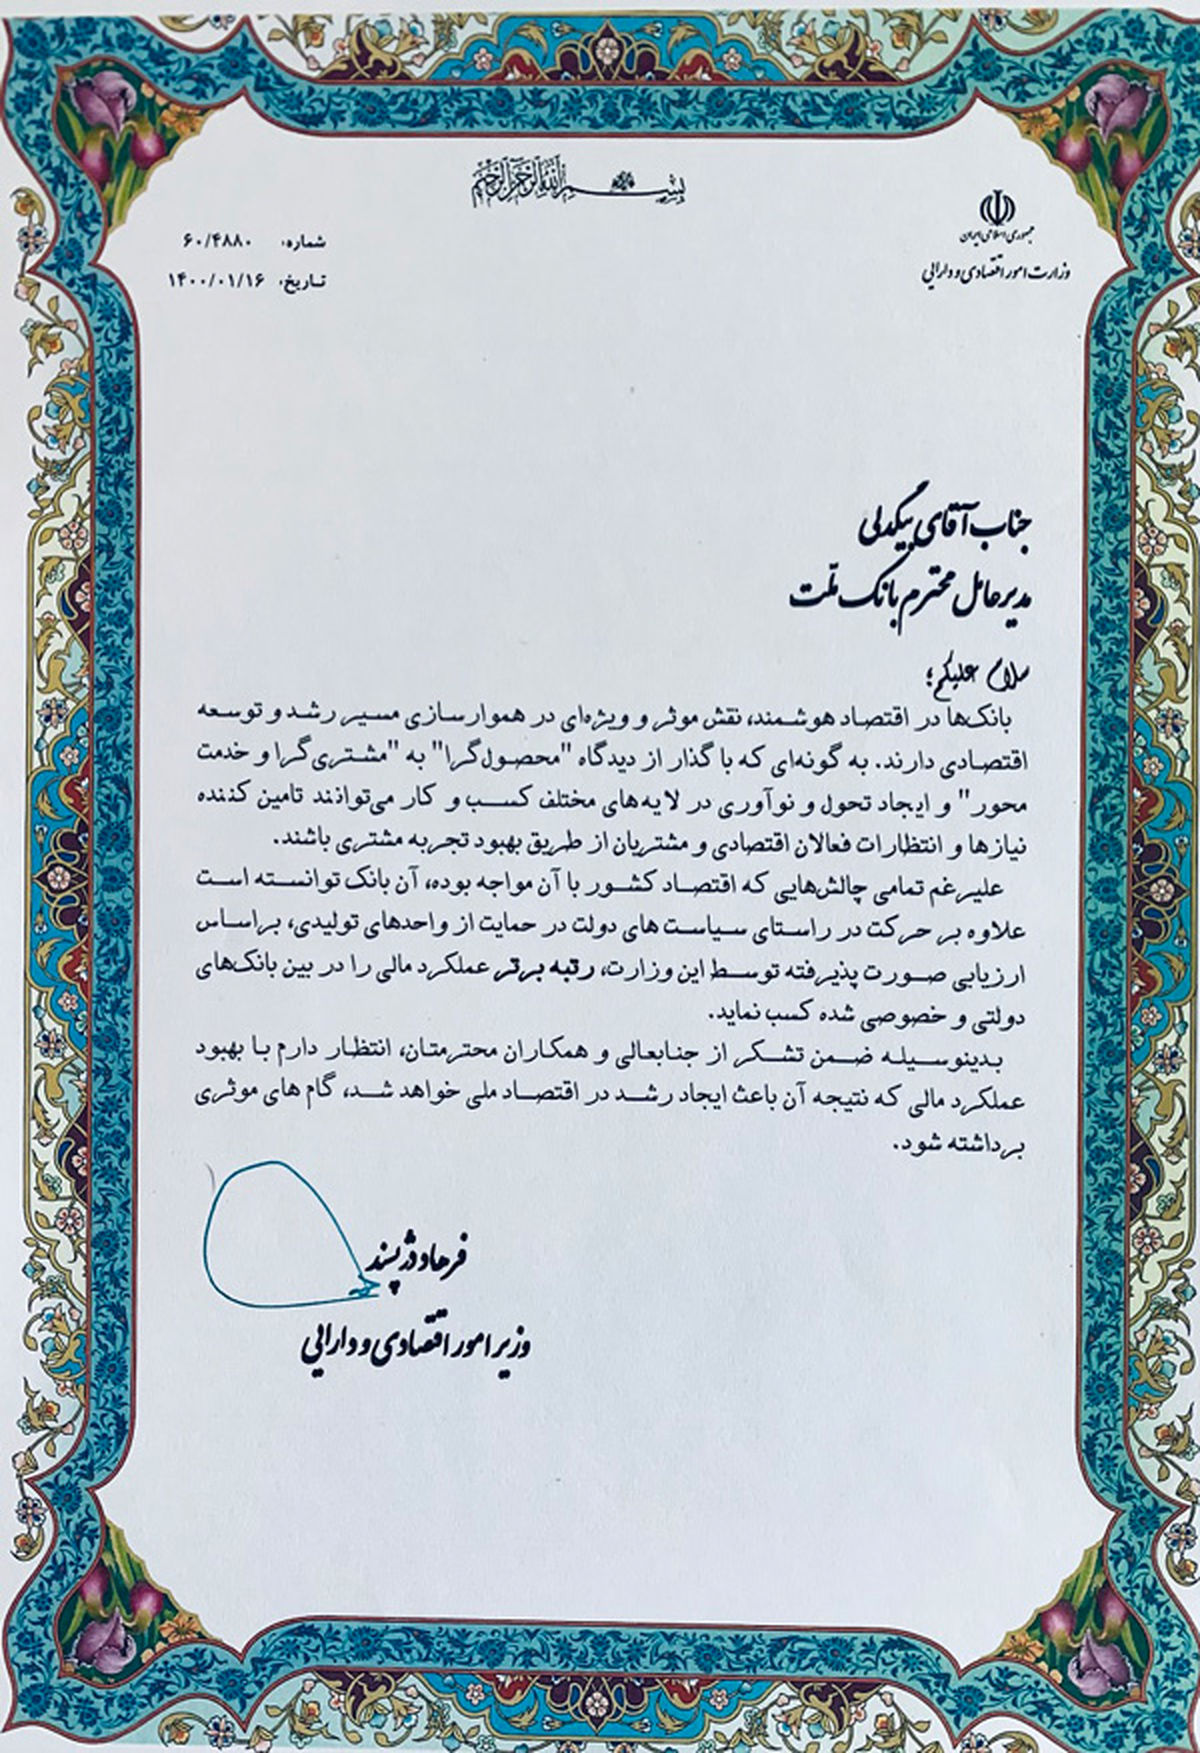 بسم الله الرحمن الرحیم
جمهوری اسلامی ایران
وزارت امور اقتصادی و دارایی
شماره: ۶۰/۴۸۸۰
تاریخ: ۱۴۰۰/۰۱/۱۶
جناب آقای بیگدلی
مدیرعامل محترم بانک ملت
سلام علیکم؛
بانک‌ها در اقتصاد هوشمند، نقش موثر و ویژه‌ای در هموارسازی مسیر رشد و توسعه
اقتصادی دارند. به گونه‌ای که با گذار از دیدگاه "محصول‌گرا" به "مشتری‌گرا و خدمت
محور" و ایجاد تحول و نوآوری در لایه‌های مختلف کسب و کار می‌توانند تامین کننده
نیازها و انتظارات فعالان اقتصادی و مشتریان از طریق بهبود تجربه مشتری باشند.
علیرغم تمامی چالش‌هایی که اقتصاد کشور با آن مواجه بوده، آن بانک توانسته است
علاوه بر حرکت در راستای سیاست های دولت در حمایت از واحدهای تولیدی، براساس
ارزیابی صورت پذیرفته توسط این وزارت، رتبه برتر عملکرد مالی را در بین بانک‌های
دولتی و خصوصی شده کسب نماید.
بدینوسیله ضمن تشکر از جنابعالی و همکاران محترمتان، انتظار دارم با بهبود
عملکرد مالی که نتیجه آن باعث ایجاد رشد در اقتصاد ملی خواهد شد، گام های موثری
برداشته شود.
فرهاد دژپسند
وزیر امور اقتصادی و دارایی